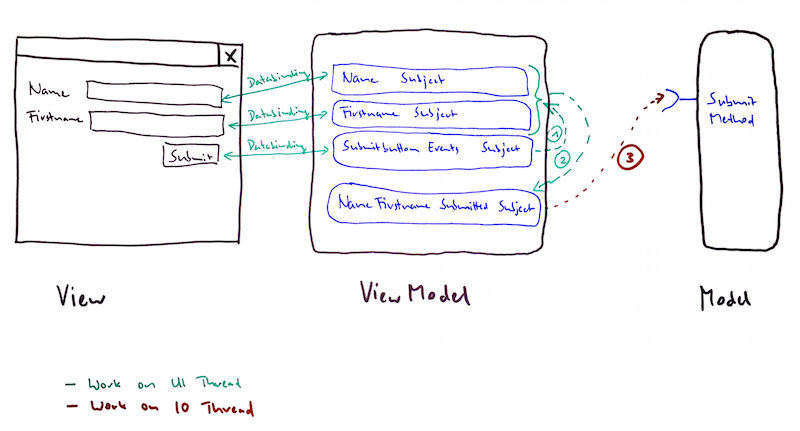 X
Name
Firstname
Submit
Databinding
Databinding
Databinding
Name Subject
Firstname Subject
Submitbuttom Events Subject
NameFirstname Submitted Subject
1
2
3
Submit
Method
View
ViewModel
Model
- Work on UI Thread
- Work on IO Thread